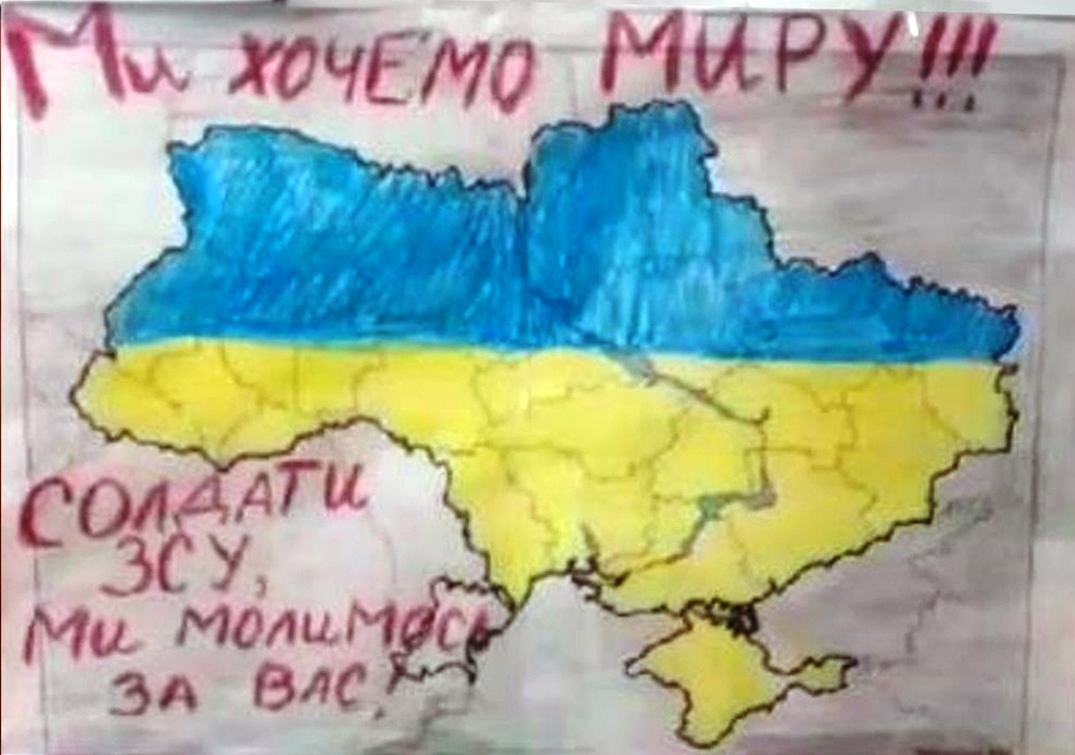 Ми хочемо МИРУ!!!
СОЛДАТИ
ЗСУ,
Ми молимось
ЗА ВАС!